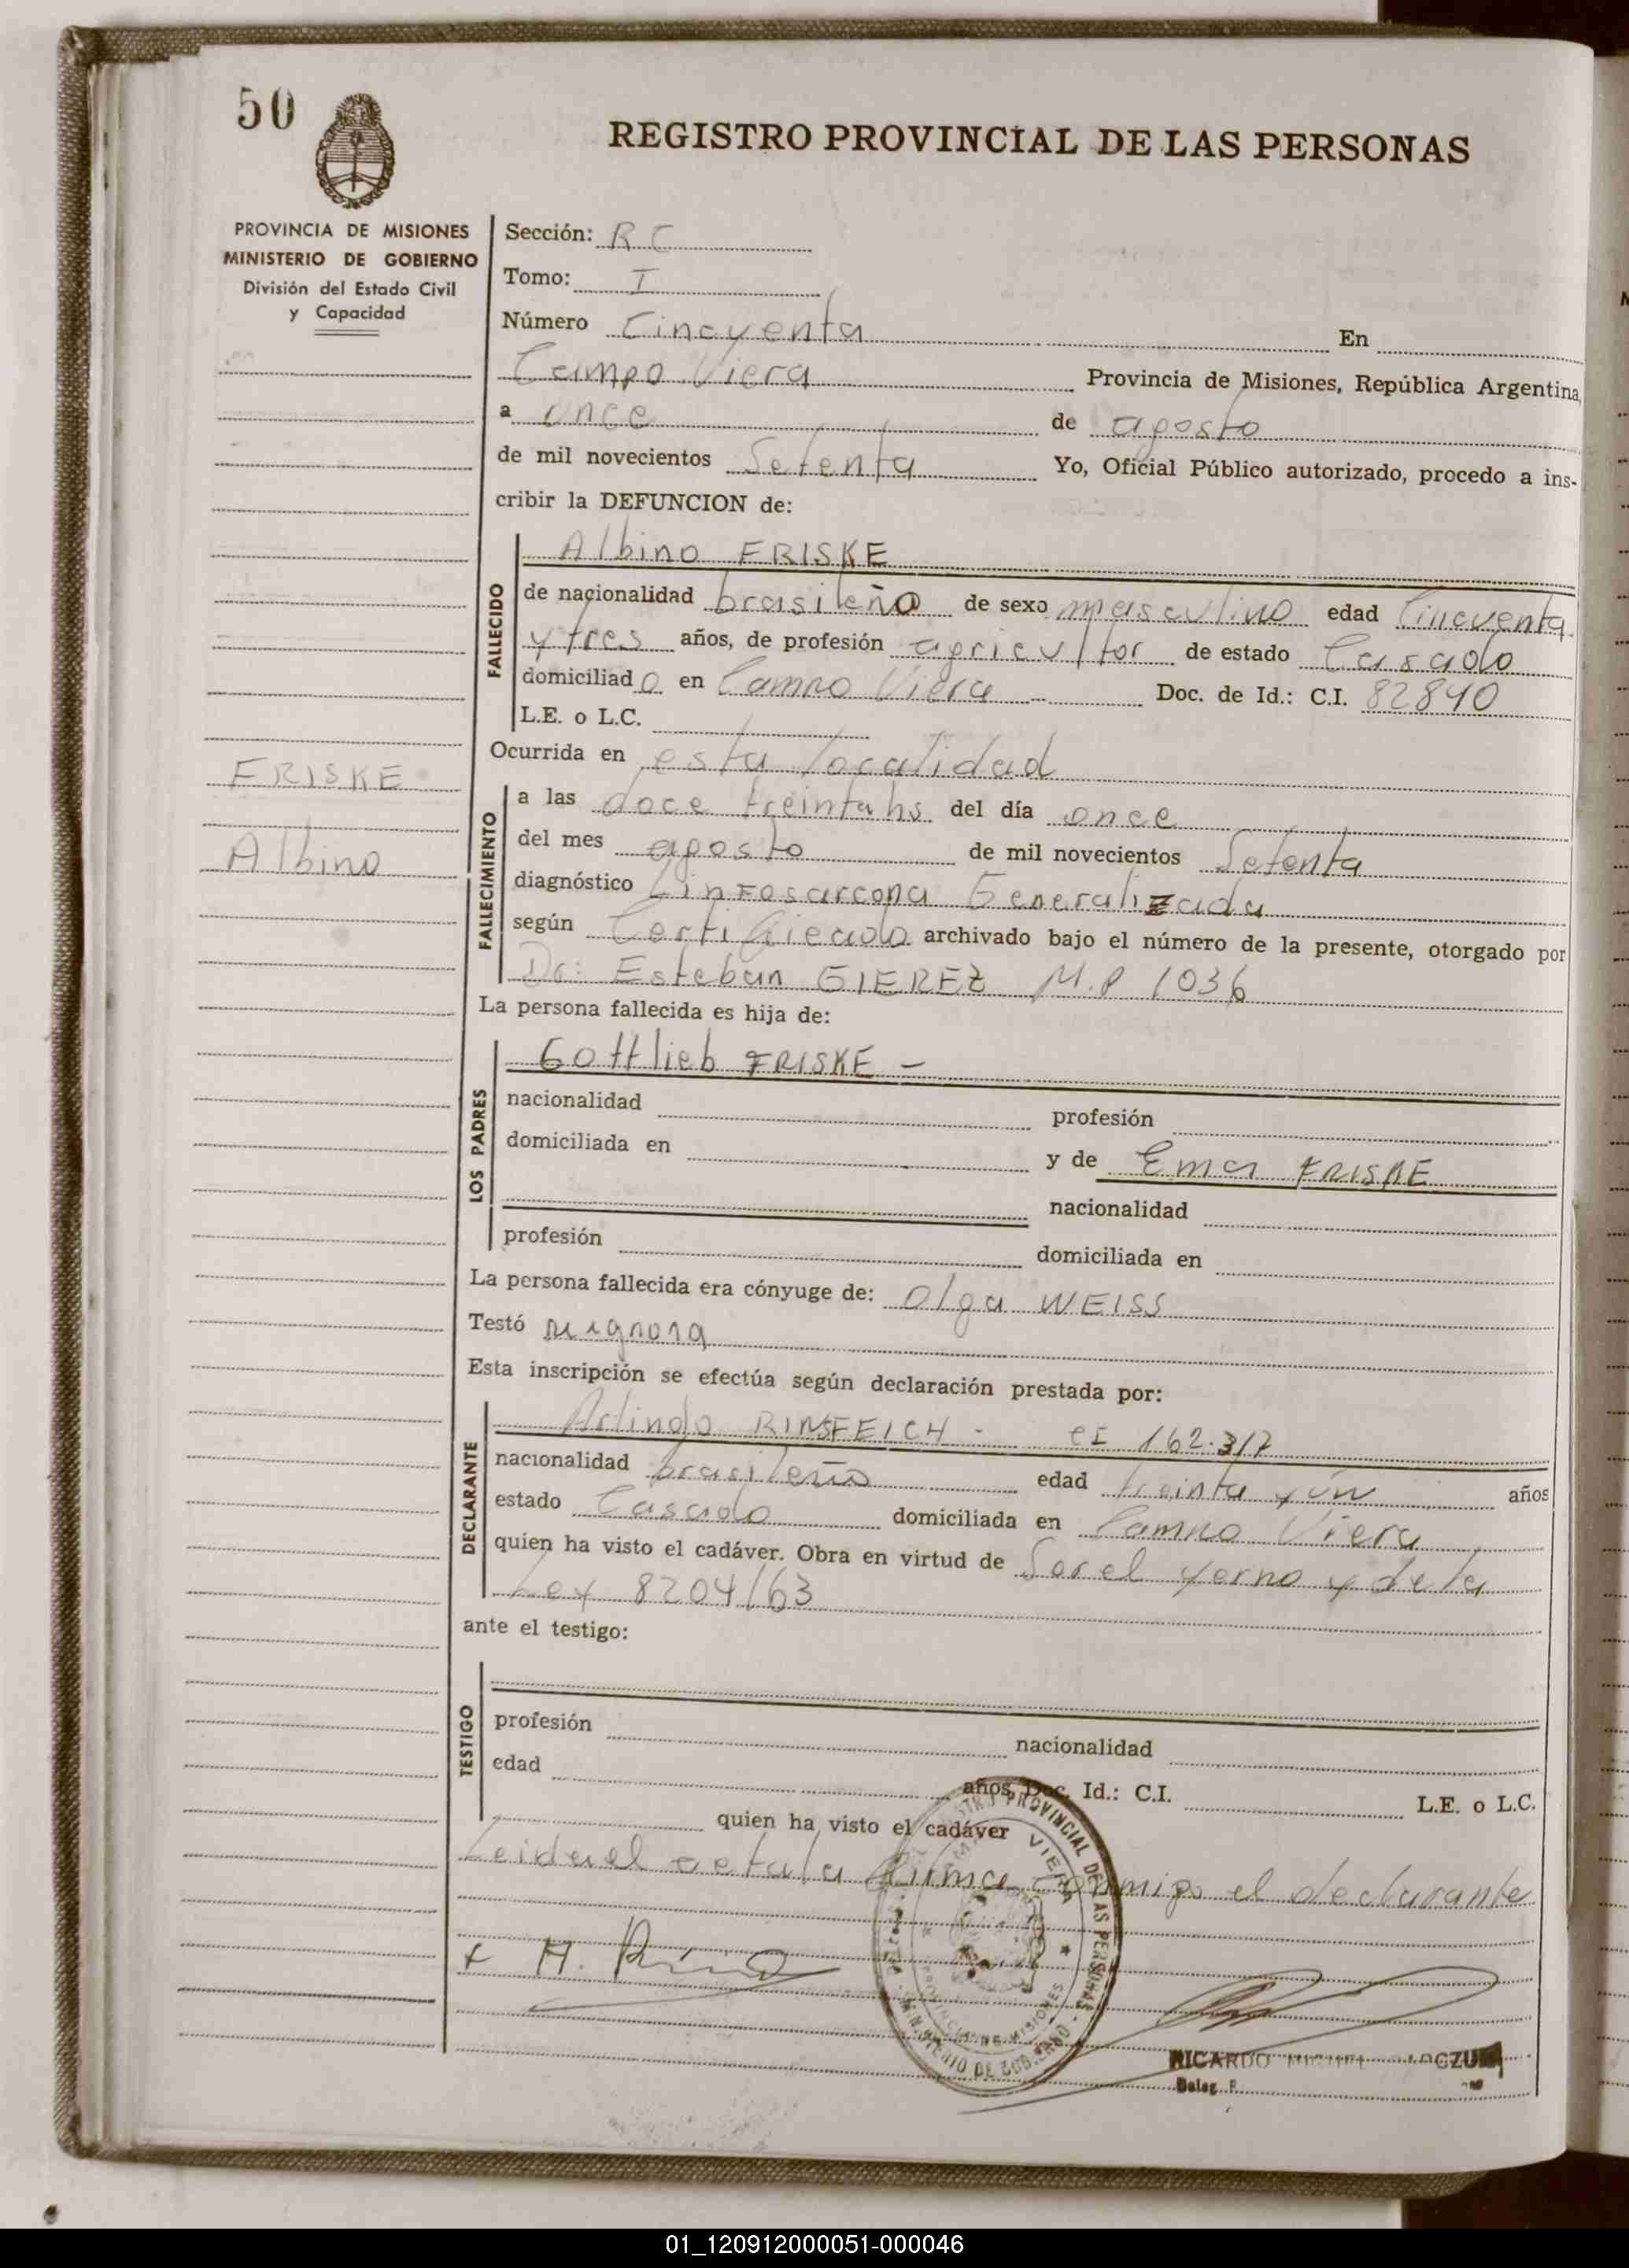 50
REGISTRO PROVINCIAL DE LAS PERSONAS
PROVINCIA DE MISIONES
MINISTERIO DE GOBIERNO
División del Estado Civil
y Capacidad
Sección: R C
Tomo: I
Número Cincuenta En
Campo Viera Provincia de Misiones, República Argentina,
a once de agosto
de mil novecientos Setenta Yo, Oficial Público autorizado, procedo a ins-
cribir la DEFUNCION de:
FALLECIDO
Albino FRISKE
de nacionalidad brasileño de sexo masculino edad Cincuenta
y tres años, de profesión agricultor de estado Casado
domiciliado en Campo Viera Doc. de Id.: C.I. 82840
L.E. o L.C.
Ocurrida en esta localidad
FRISKE
Albino
FALLECIMIENTO
a las doce treinta hs del día once
del mes agosto de mil novecientos Setenta
diagnóstico Linfosarcoma Generalizada
según Certificado archivado bajo el número de la presente, otorgado por
Dr: Esteban GIEREZ M.P 1036
La persona fallecida es hija de:
LOS PADRES
Gottlieb FRISKE -
nacionalidad profesión
domiciliada en y de Ema FRISKE
nacionalidad
profesión domiciliada en
La persona fallecida era cónyuge de: Olga WEISS
Testó se ignora
Esta inscripción se efectúa según declaración prestada por:
DECLARANTE
Arlindo RINSFEICH - CI 162.317
nacionalidad brasileño edad treinta y un años
estado Casado domiciliada en Campo Viera
quien ha visto el cadáver. Obra en virtud de Ser el yerno y de la
Ley 8204/63
ante el testigo:
TESTIGO
profesión nacionalidad
edad años, Doc. Id.: C.I. L.E. o L.C.
quien ha visto el cadáver
Leida el acta la firma conmigo el declarante
REGISTRO PROVINCIAL DE LAS PERSONAS
VIERA
PROVINCIA DE MISIONES
MINISTERIO DE GOBIERNO
RICARDO MIGUEL
Deleg.
01_120912000051-000046